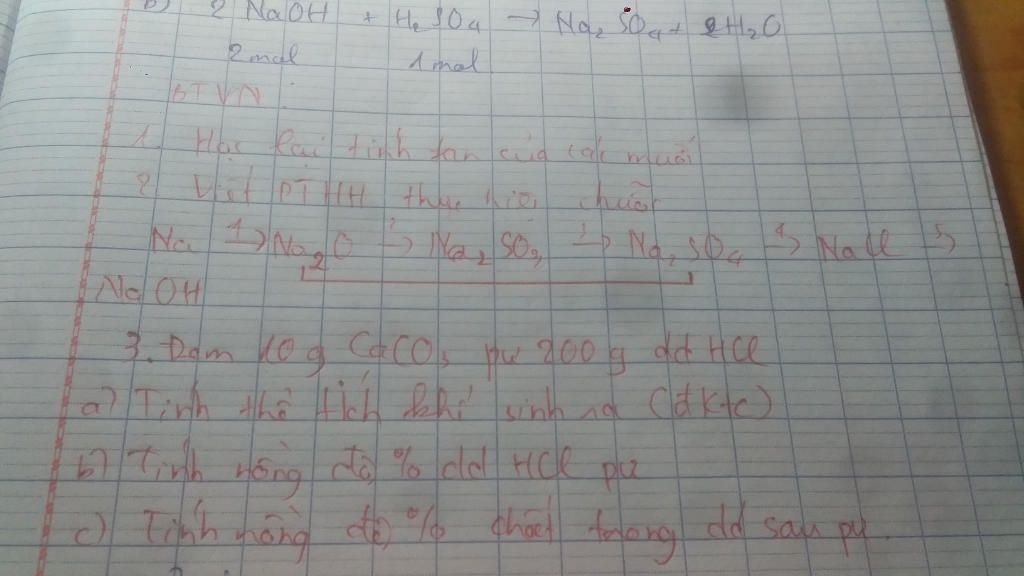 b) 2 NaOH + H₂SO₄ → Na₂SO₄ + 2H₂O
2 mol 1 mol
BTVN :
1. Học lại tính tan của các muối
2. Viết PTHH thực hiện chuỗi
Na 1→ Na₂O 2→ Na₂SO₃ 3→ Na₂SO₄ 4→ NaCl 5→
NaOH
3. Đem 10 g CaCO₃ pư 200 g dd HCl
a) Tính thể tích khí sinh ra (đktc)
b) Tính nồng độ % dd HCl pư
c) Tính nồng độ % chất trong dd sau pư.